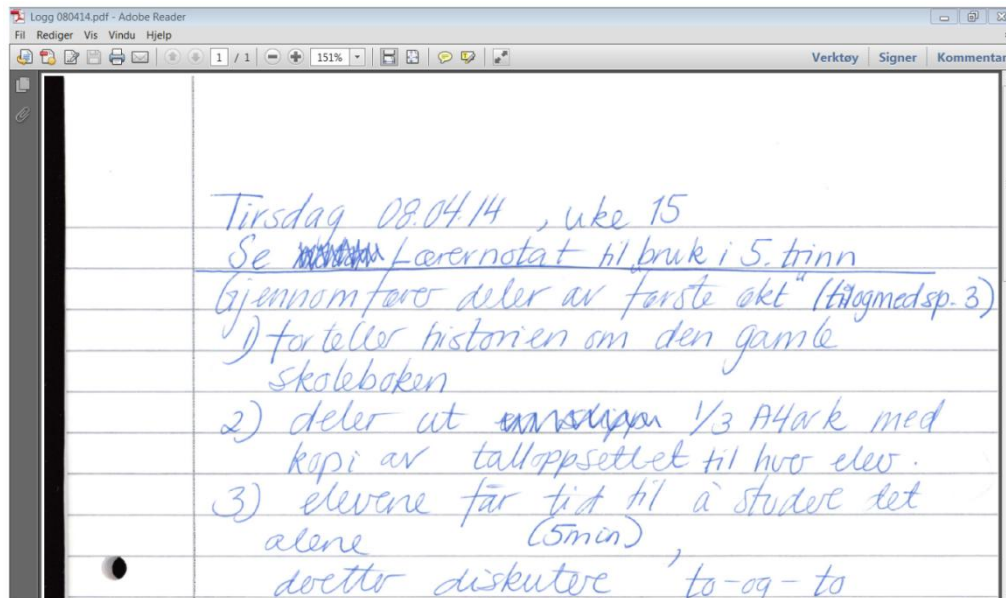 Logg 080414.pdf - Adobe Reader
Fil Rediger Vis Vindu Hjelp
1 / 1 151% Verktøy Signer Kommentar
Tirsdag 08.04.14 , uke 15
Se Lærernotat til bruk i 5. trinn
Gjennomfører deler av "første økt" (tilogmed sp. 3)
1) forteller historien om den gamle
skoleboken
2) deler ut 1/3 A4ark med
kopi av talloppsettet til hver elev.
3) elevene får tid til å studere det
alene (5min) ,
deretter diskutere to-og-to